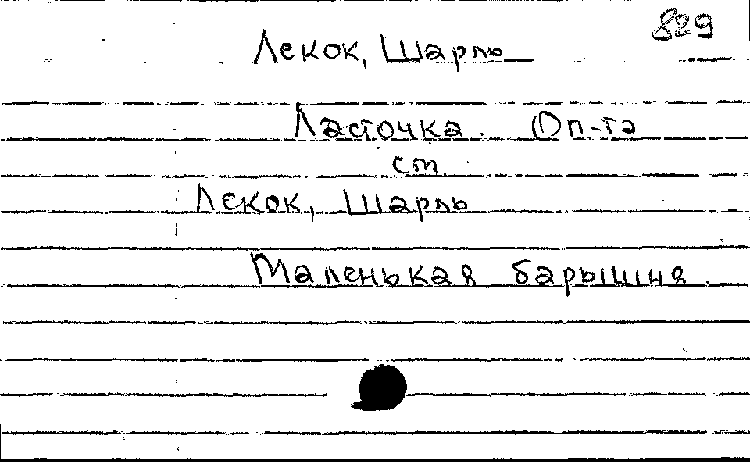 829
Лекок, Шарль
Ласточка. Оп-та
см.
Лекок, Шарль
Маленькая барышня.